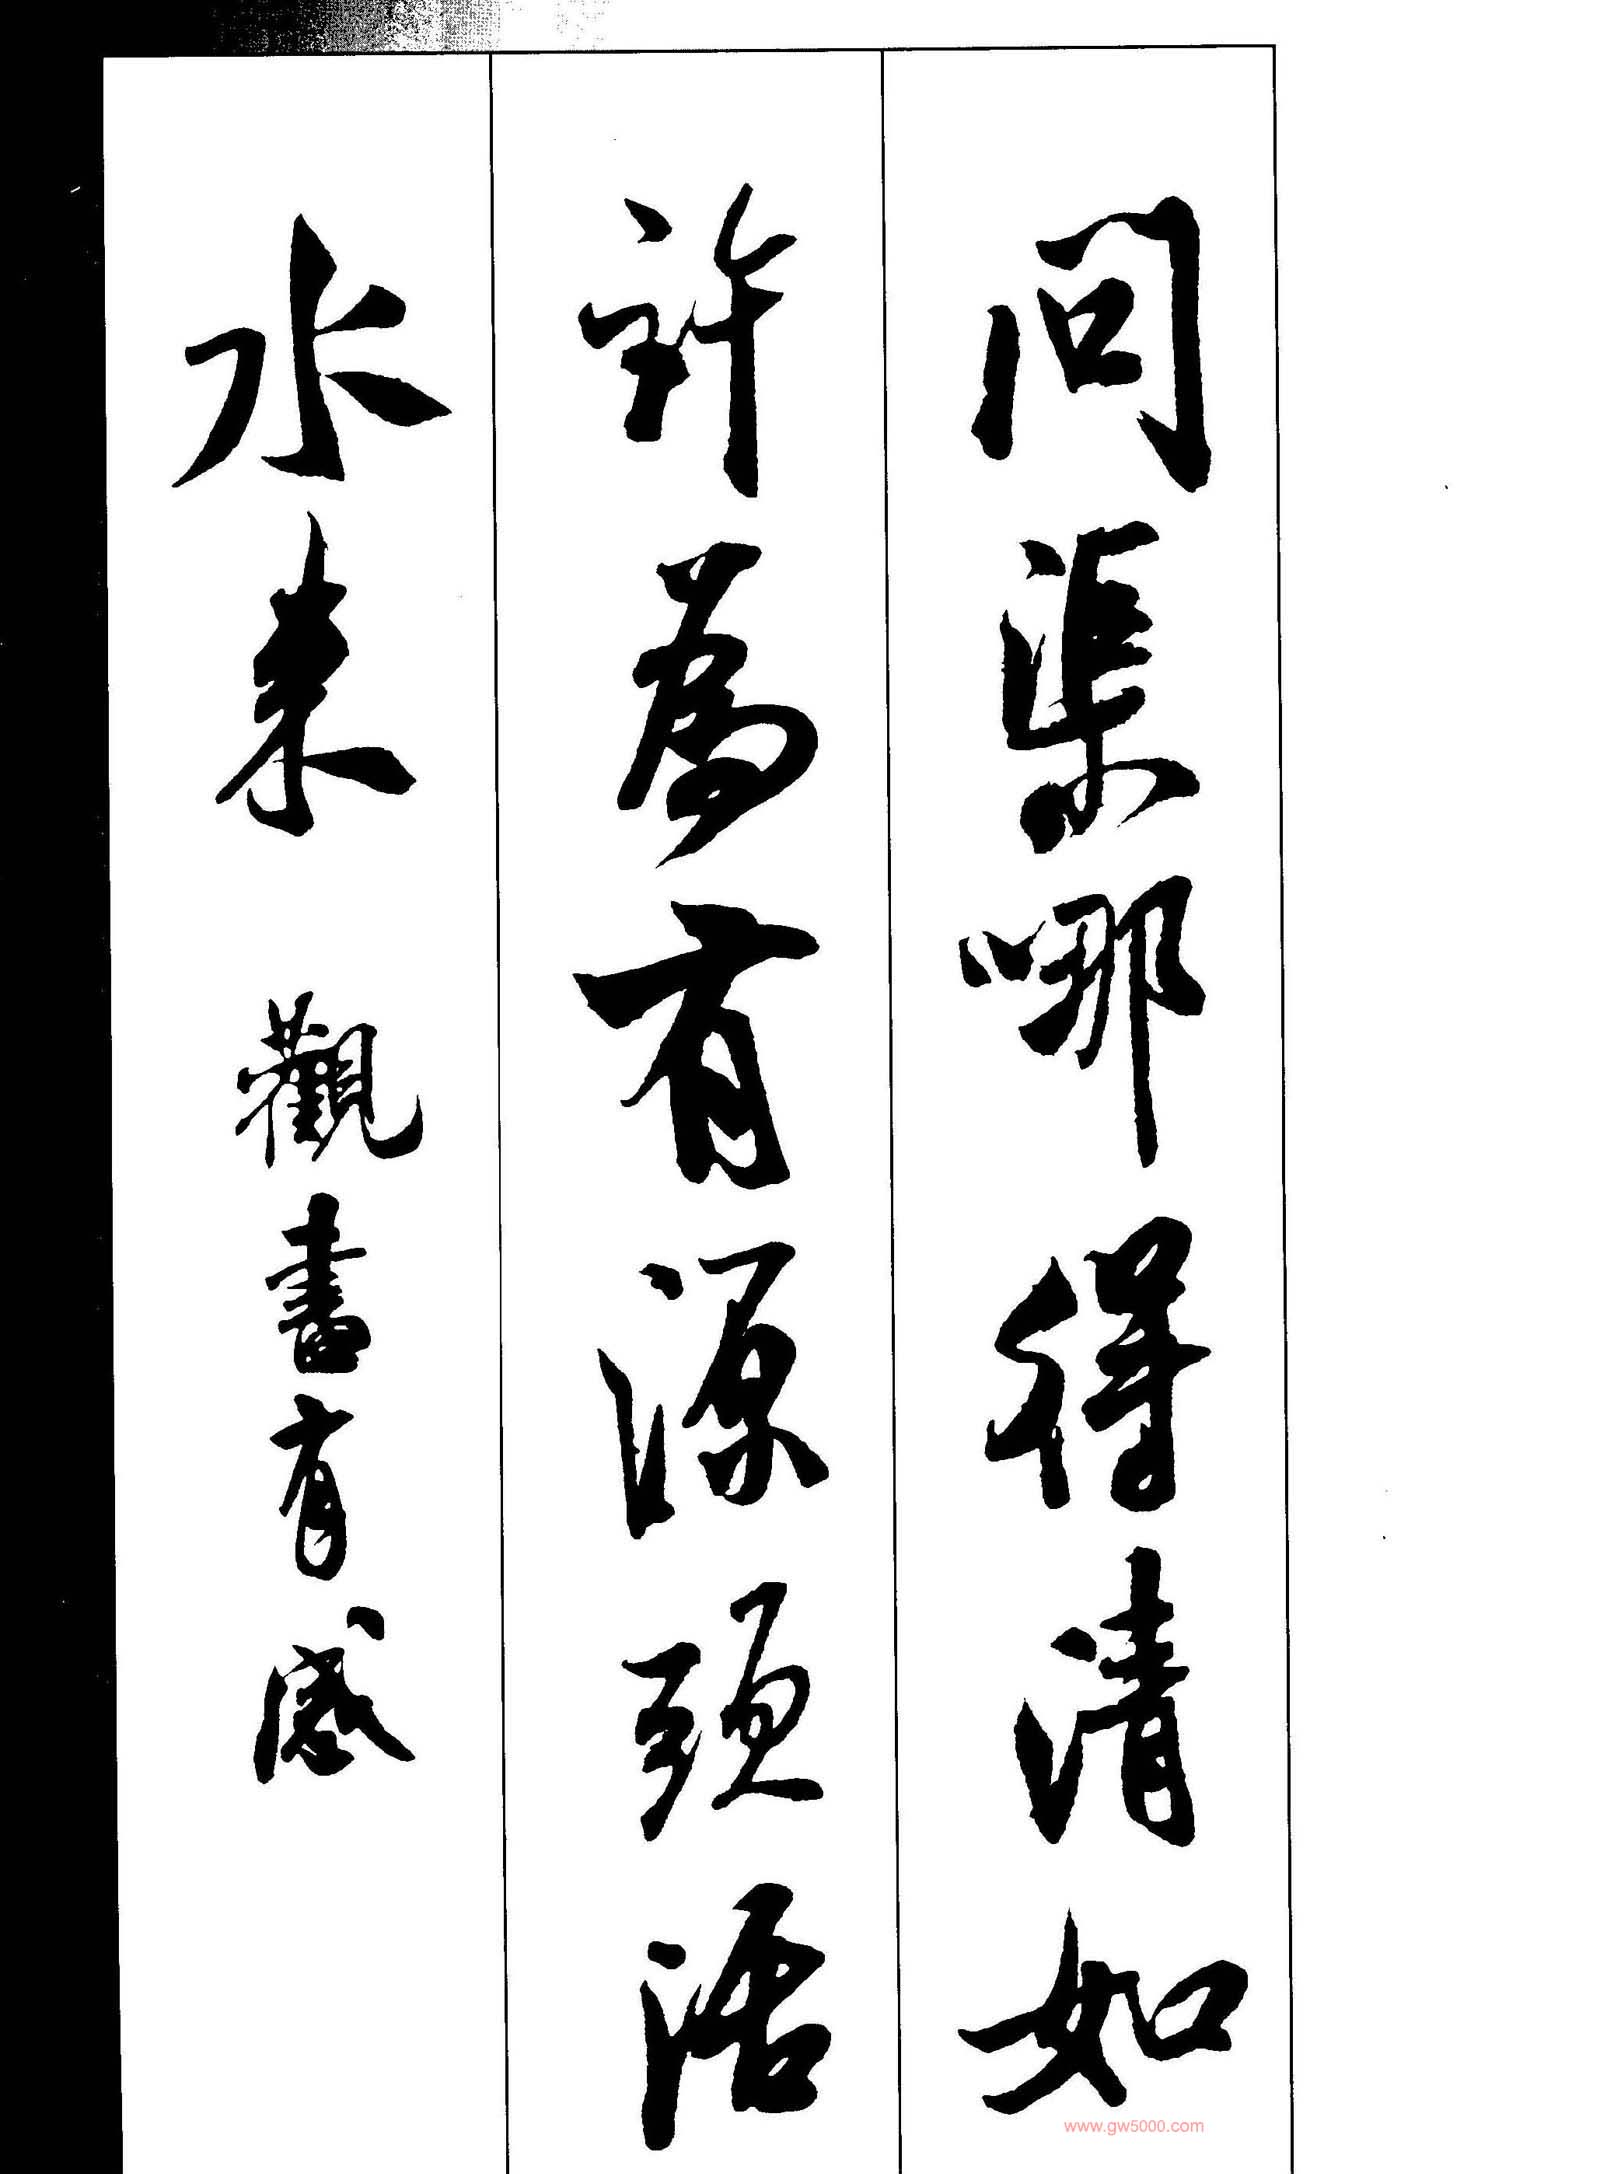 问渠哪得清如
許為有源頭活
水来 觀書有感
www.gw5000.com